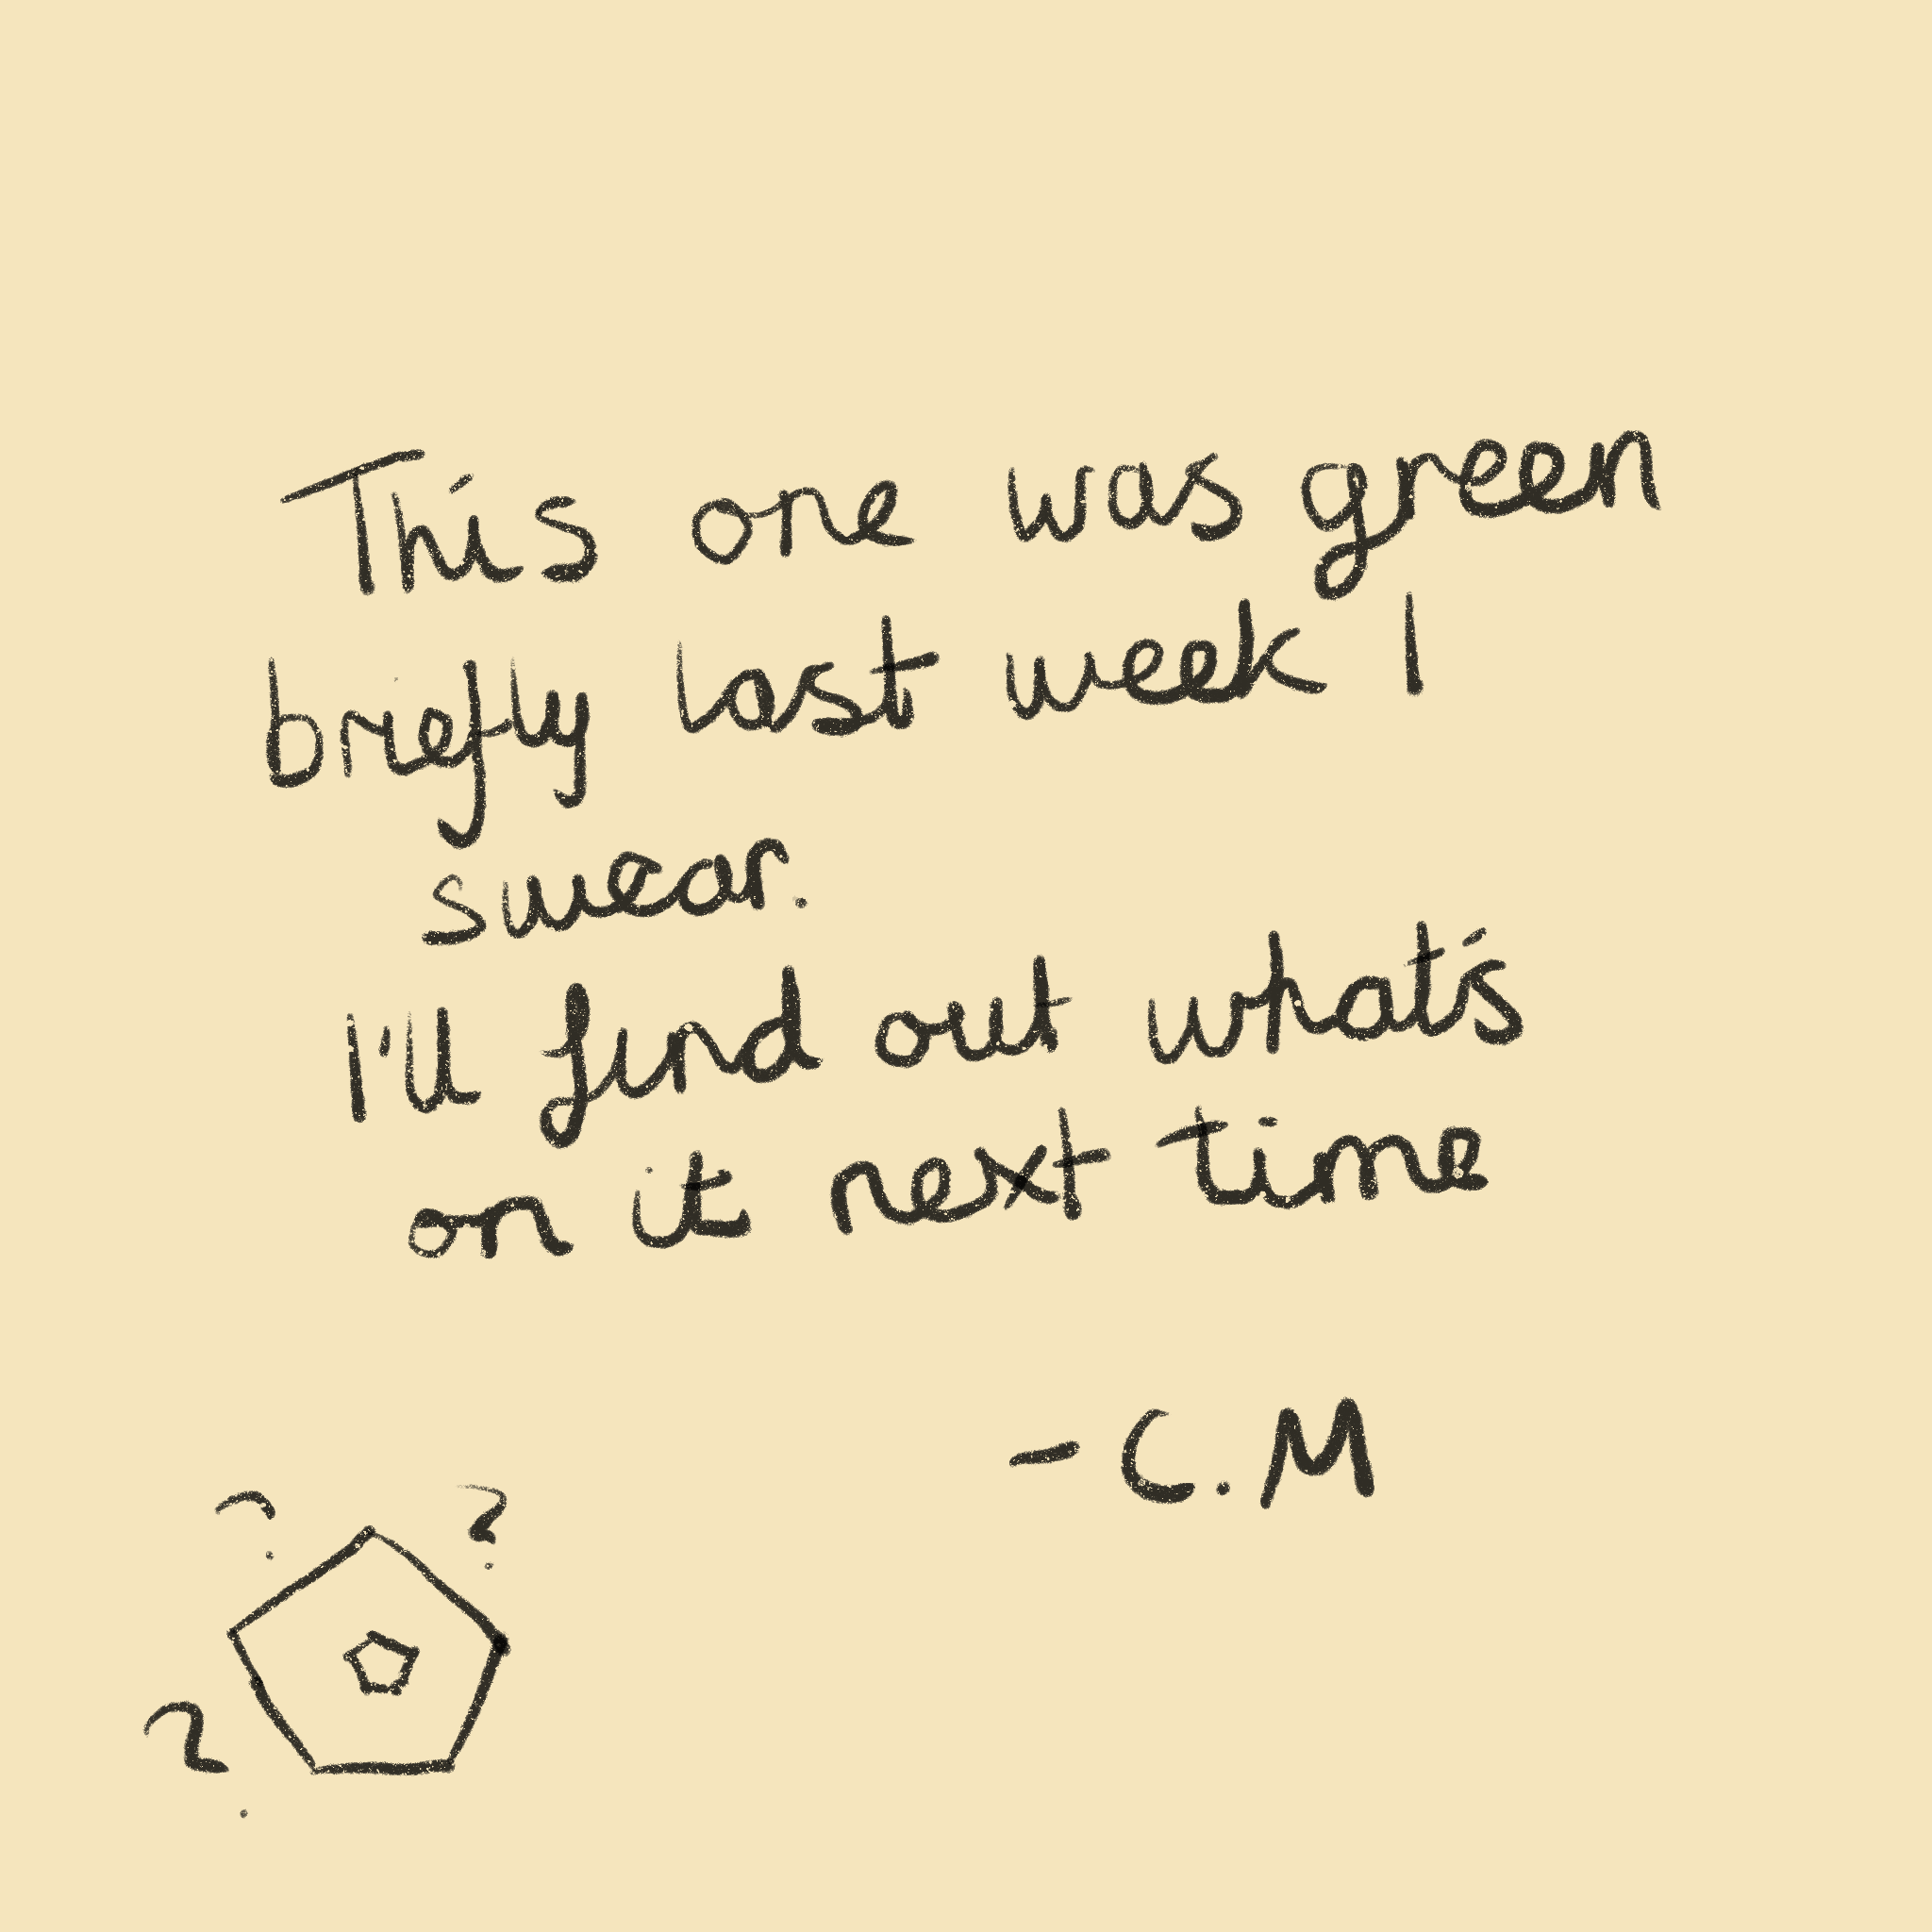 This one was green
briefly last week I
swear.
I'll find out what's
on it next time
- C.M
? ?
?